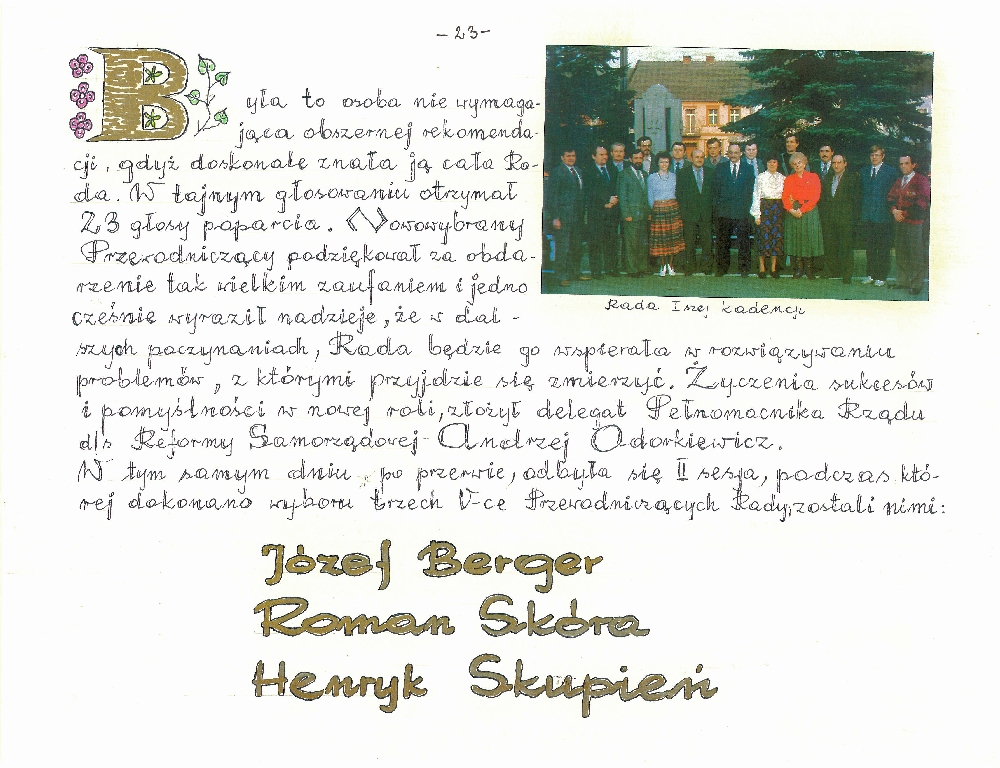 - 23 -
Była to osoba nie wymaga-
jąca obszernej rekomenda-
cji, gdyż doskonale znała ją cała Ra-
da. W tajnym głosowaniu otrzymał
23 głosy poparcia. Nowowybrany
Przewodniczący podziękował za obda-
rzenie tak wielkim zaufaniem i jedno
cześnie wyraził nadzieje, że w dal -
szych poczynaniach, Rada będzie go wspierała w rozwiązywaniu
problemów, z którymi przyjdzie się zmierzyć. Życzenia sukcesów
i pomyślności w nowej roli, złożył delegat Pełnomocnika Rządu
dls Reformy Samorządowej - Andrzej Odorkiewicz.
W tym samym dniu po przerwie, odbyła się II sesja, podczas któ-
rej dokonano wyboru trzech V-ce Przewodniczących Rady, zostali nimi:
Józef Berger
Roman Skóra
Henryk Skupień
Rada Iszej kadencji